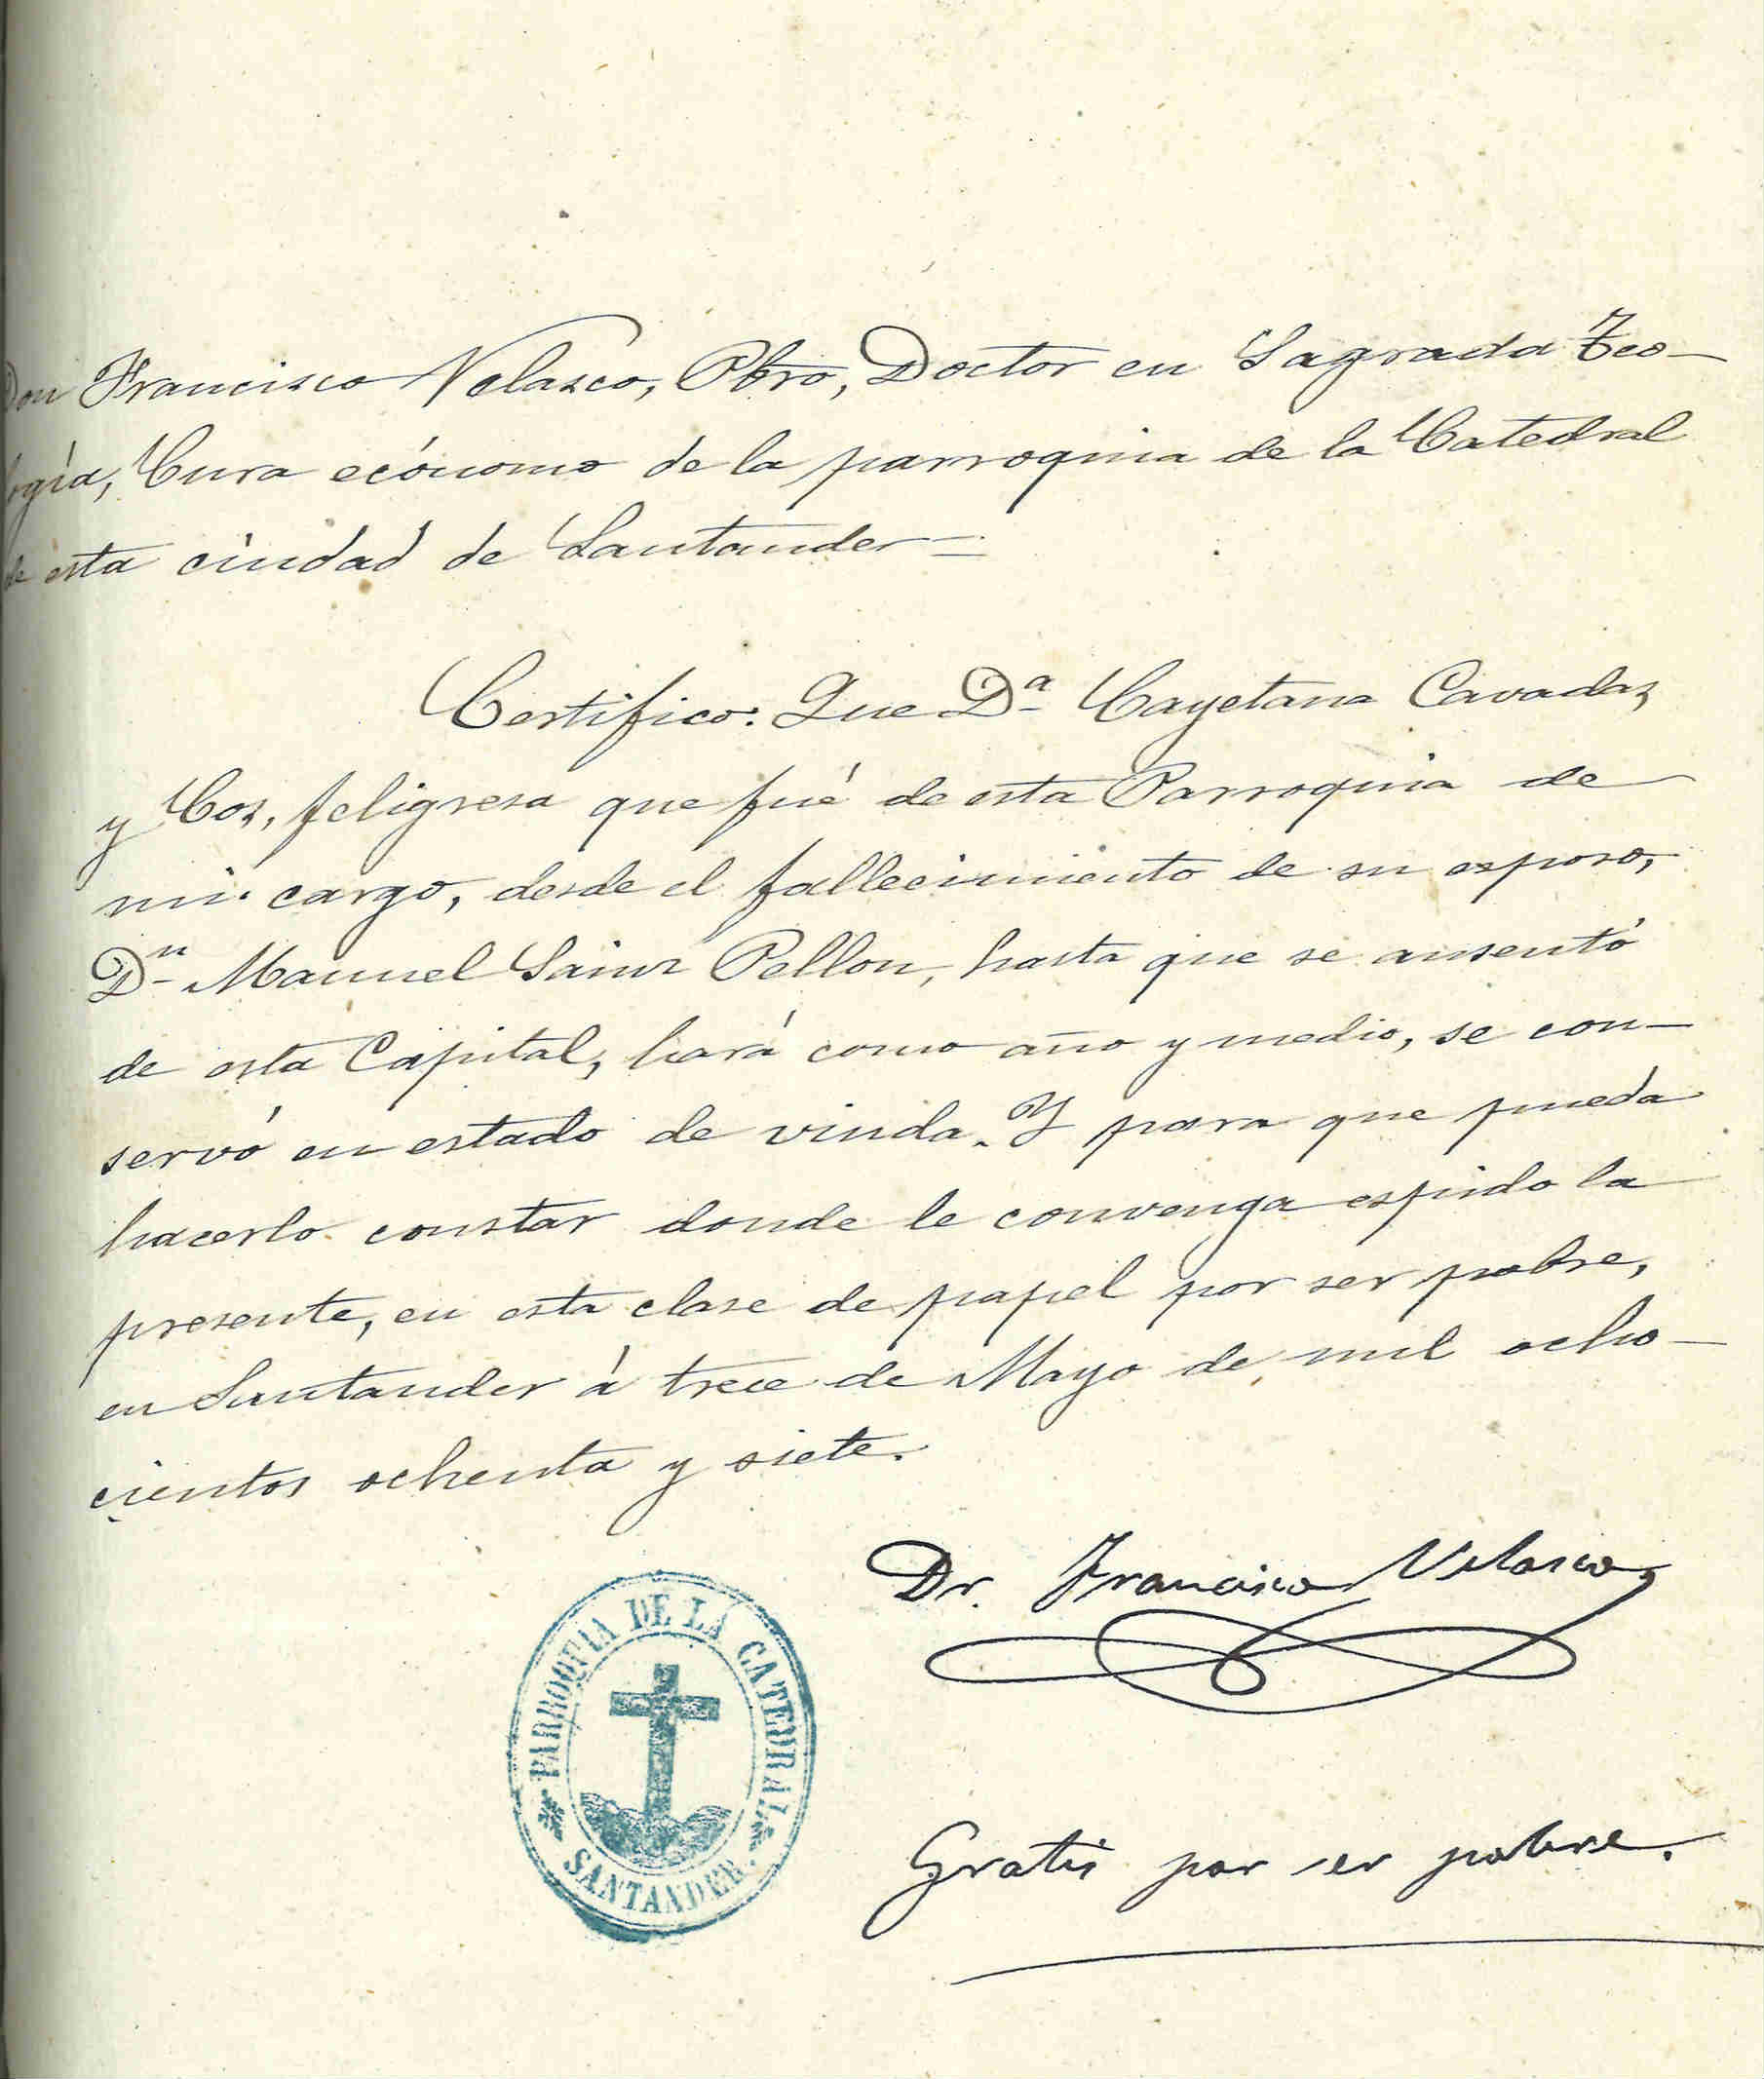 Don Francisco Velasco, Pbro, Doctor en Sagrada Teo-
logía, Cura ecónomo de la parroquia de la Catedral
de esta ciudad de Santander=
Certifico: Que Dª Cayetana Cavadas
y Cos, feligresa que fué de esta Parroquia de
mi cargo, desde el fallecimiento de su esposo,
Dⁿ Manuel Sainz Pellon, hasta que se ausentó
de esta Capital, hará como año y medio, se con-
servó en estado de viuda. Y para que pueda
hacerlo constar donde le convenga espido la
presente, en esta clase de papel por ser pobre,
en Santander á trece de Mayo de mil ocho-
cientos ochenta y siete.
Dr. Francisco Velasco
PARROQUIA DE LA CATEDRAL
SANTANDER.
Gratis por ser pobre.